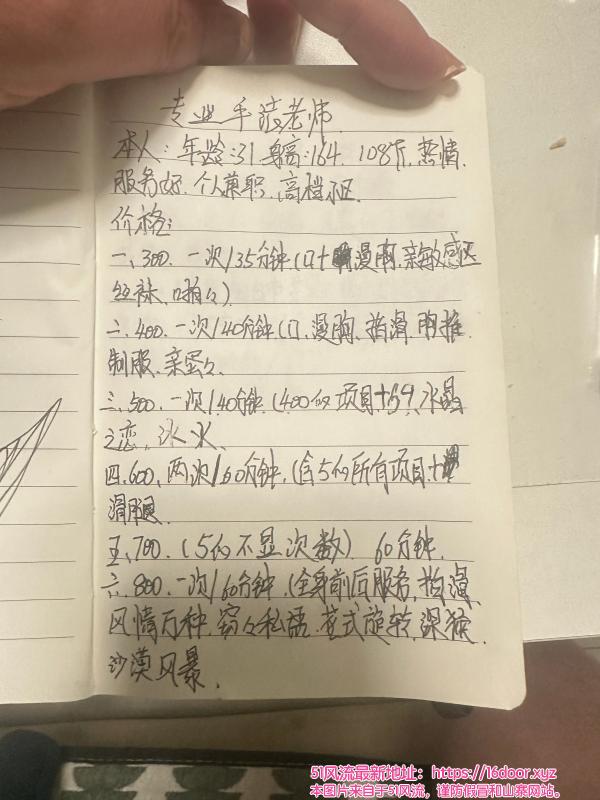 专业手法老师
本人:年龄:31 身高:164. 108斤, 热情,
服务好. 个人兼职, 高档小区.
价格:
一、300. 一次/35分钟(口+漫胸,亲敏感区
丝袜、啪々)
二、400. 一次/40分钟(口、漫胸、指滑、胸推
制服、亲蛋々.
三、500. 一次/40分钟(400的项目+69、水晶
之恋、冰火、
四、600、两次/60分钟,(含5的所有项目+
滑腿.
五、700. (5的不显次数) 60分钟.
六、800. 一次/60分钟(全身前后服务、指滑
风情万种、窃々私语、花式旋转、深猴
沙漠风暴.
51风流最新地址:https://16door.xyz
本图片来自于51风流,谨防假冒和山寨网站。